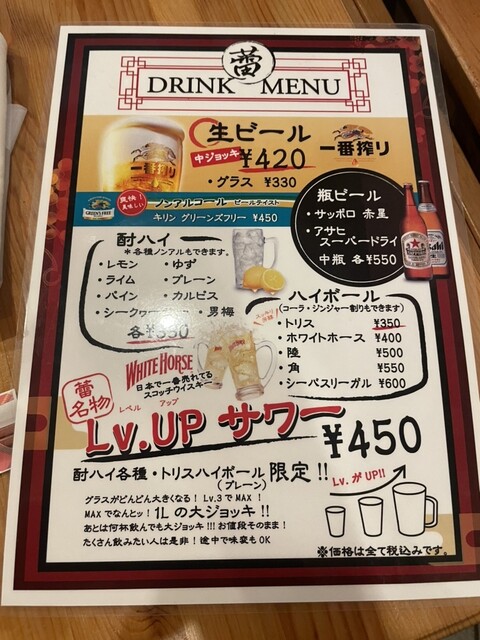 蕾
DRINK MENU
生ビール
中ジョッキ ¥420
・グラス ¥330
一番搾り
一番搾り
爽快!美味しい
ノンアルコール ビールテイスト
キリン グリーンズフリー ¥450
GREEN'S FREE
瓶ビール
・サッポロ 赤星
・アサヒ
スーパードライ
中瓶 各¥550
酎ハイ
*各種ノンアルもできます。
・レモン ・ゆず
・ライム ・プレーン
・パイン ・カルピス
・シークヮーサー ・男梅
各¥350
ハイボール
(コーラ・ジンジャー割りもできます)
・トリス ¥350
・ホワイトホース ¥400
・陸 ¥500
・角 ¥550
・シーバスリーガル ¥600
WHITE HORSE
日本で一番売れてる
スコッチウイスキー
蕾名物
レベル アップ
Lv.UP サワー ¥450
酎ハイ各種・トリスハイボール 限定!!
(プレーン)
Lv.がUP!!
グラスがどんどん大きくなる! Lv.3でMAX!
MAXでなんとッ! 1Lの大ジョッキ!!
あとは何杯飲んでも大ジョッキ!!!お値段そのまま!
たくさん飲みたい人は是非! 途中で味変もOK
※価格は全て税込みです。